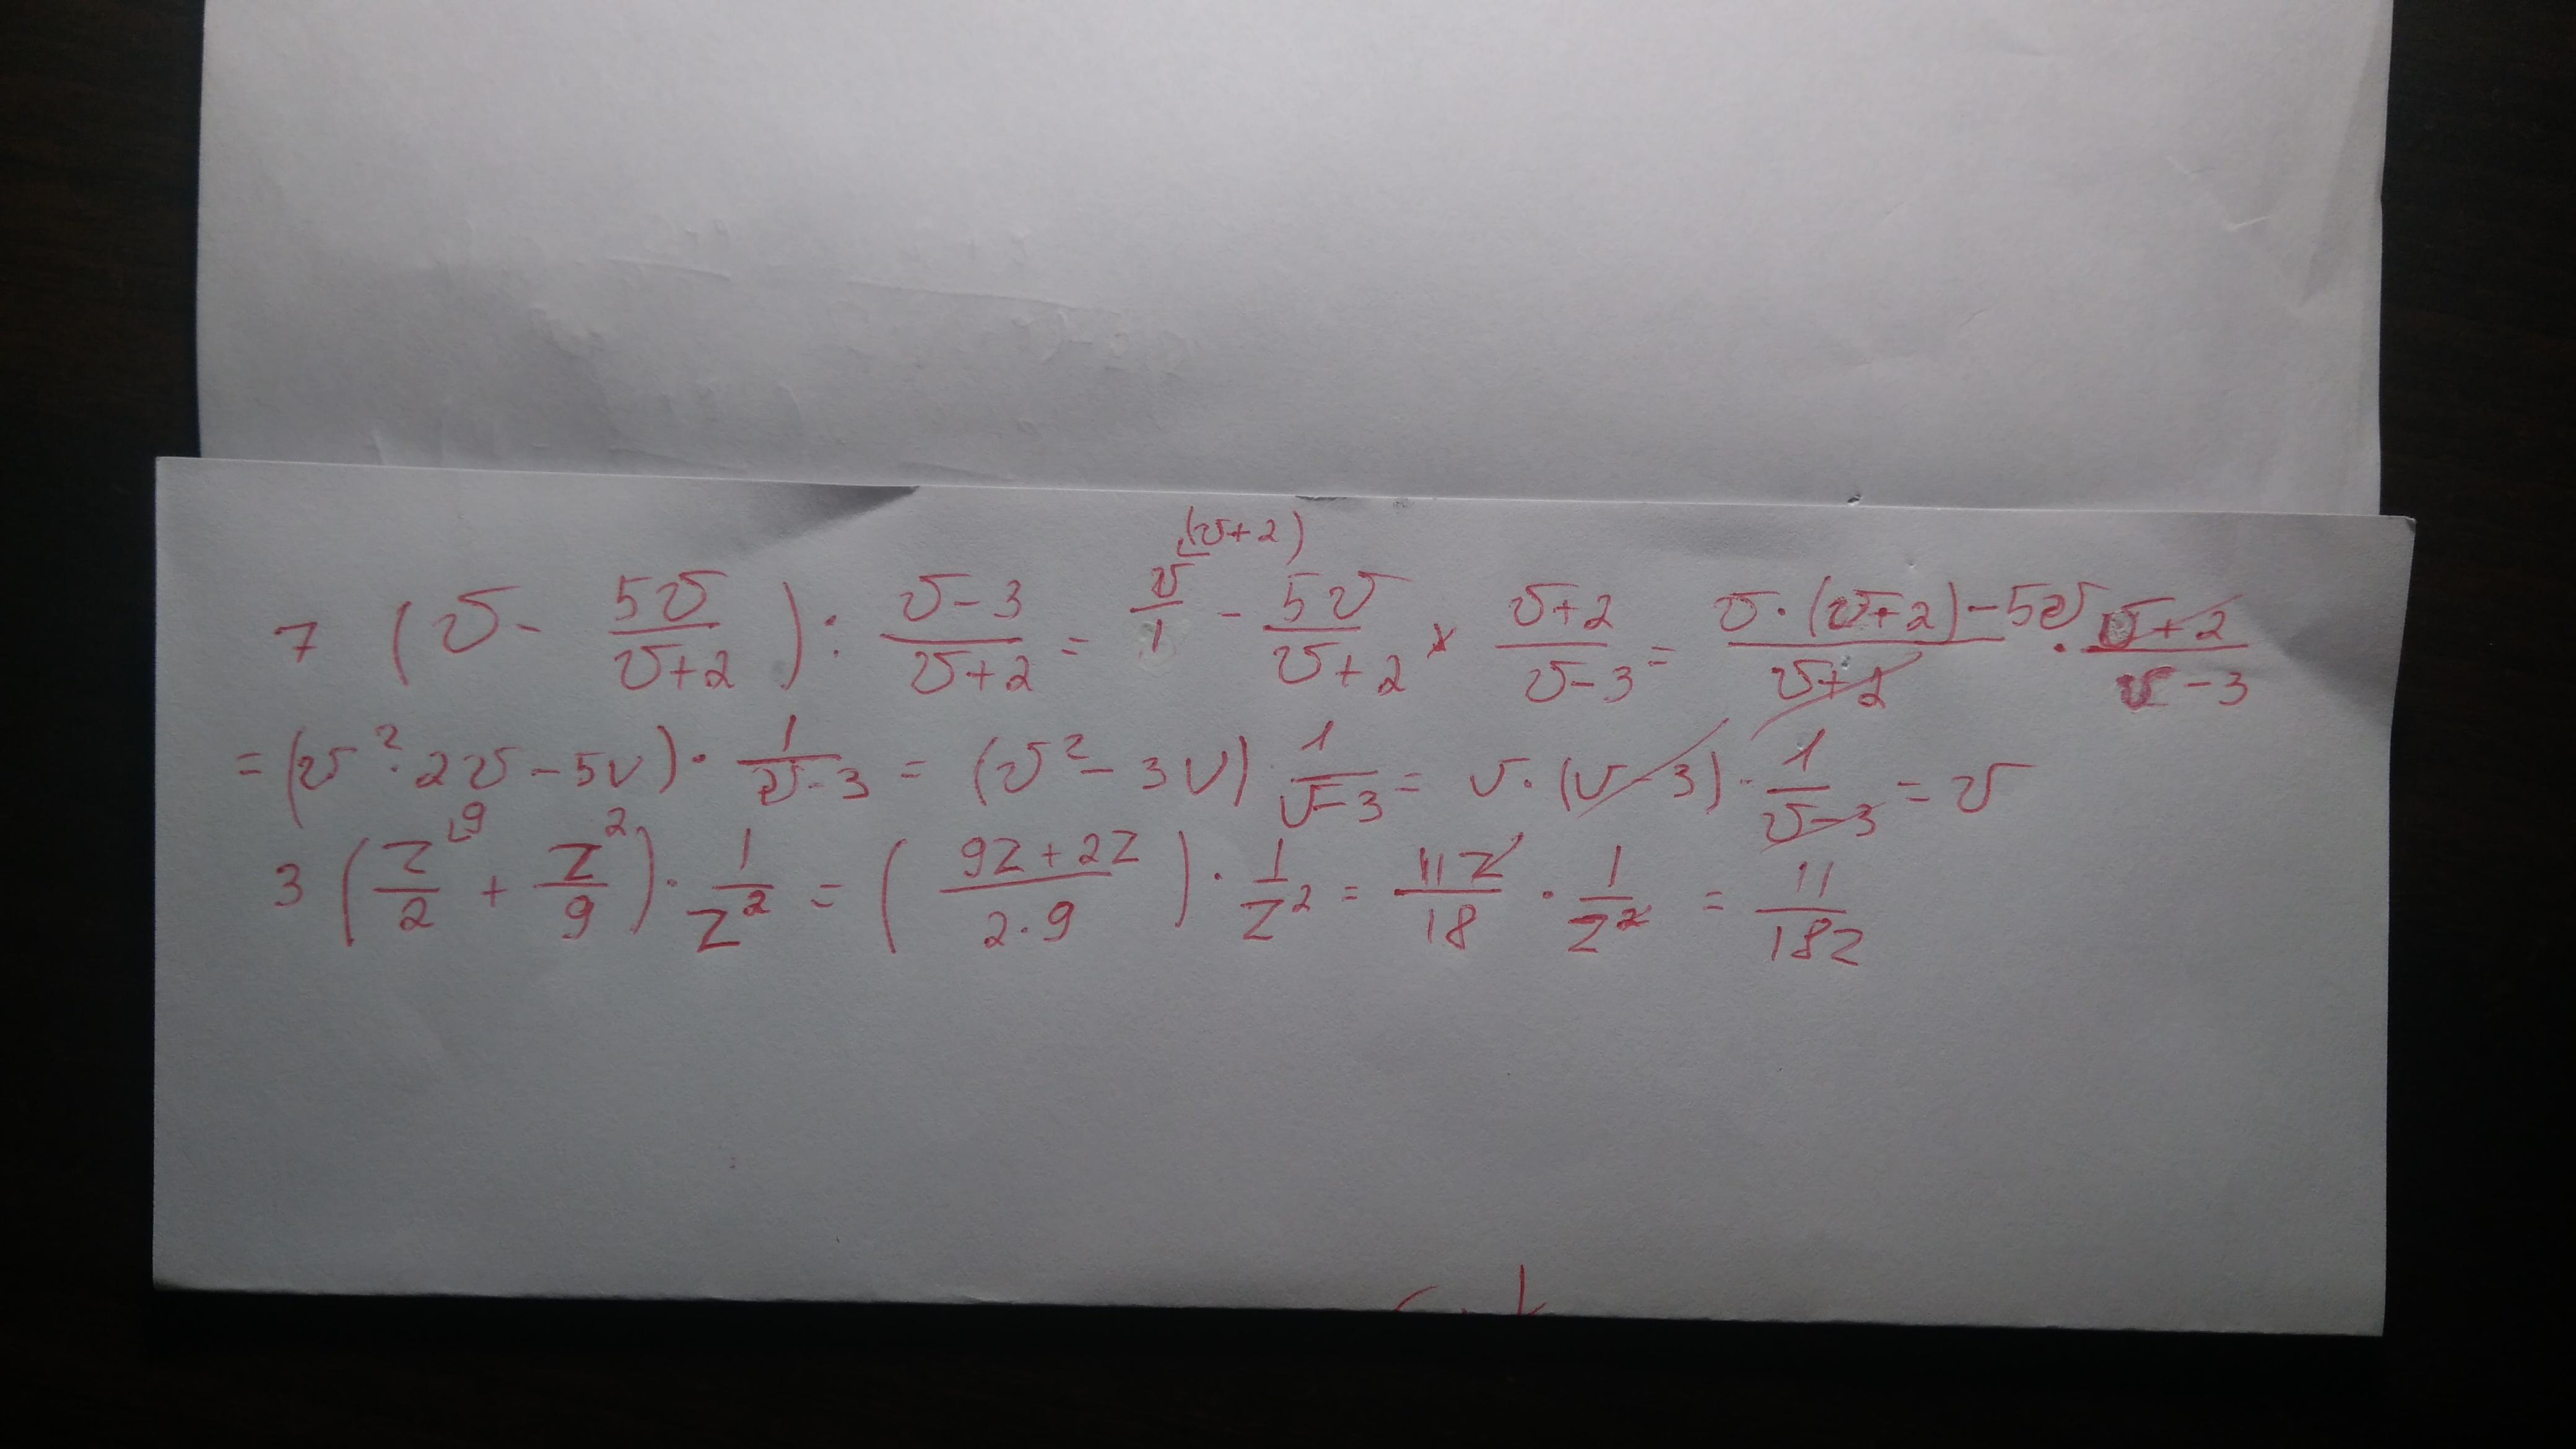 7 (v - 5v/(v+2)) : (v-3)/(v+2) = v/1 (v+2) - 5v/(v+2) × (v+2)/(v-3) = (v·(v+2)-5v)/(v+2) · (v+2)/(v-3)
= (v²·2v-5v) · 1/(v-3) = (v²-3v) 1/(v-3) = v·(v-3) · 1/(v-3) = v
3 (z/2 ⌊9 + z/9 2) · 1/z² = ((9z+2z)/(2·9)) · 1/z² = 11z/18 · 1/z² = 11/18z